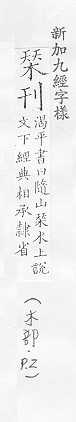 新加九經字樣
栞刊
渴平書曰隨山栞木上說
文下經典相承隸省
（木部．P.2）